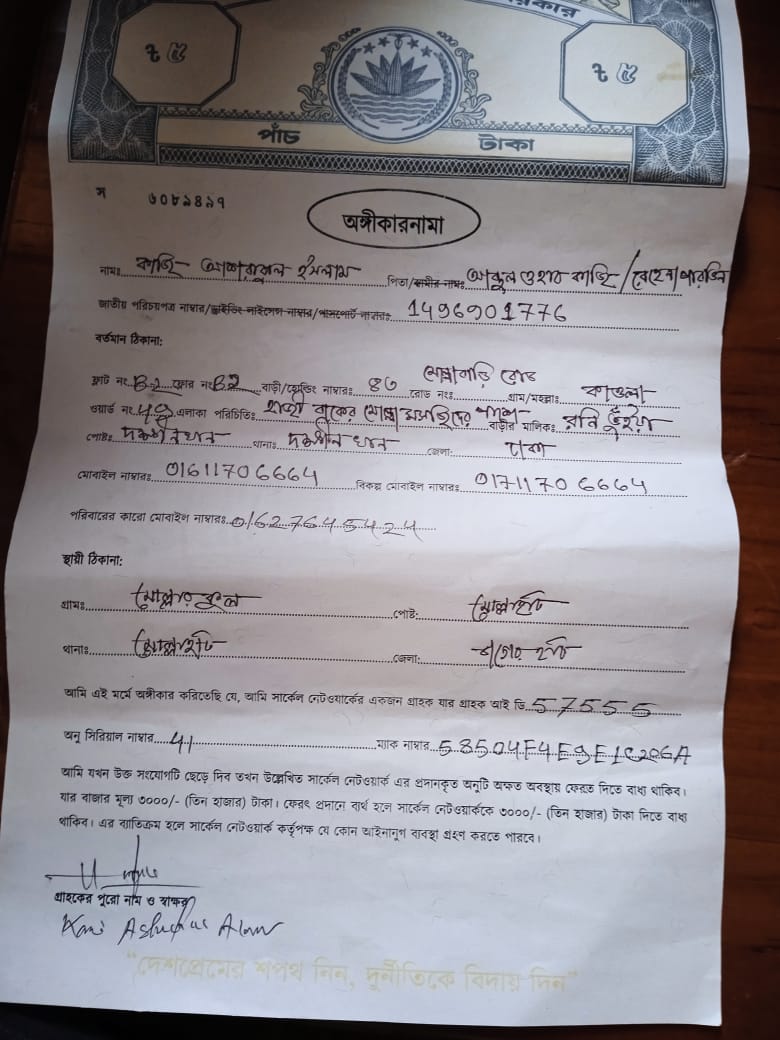 ৳ ৫
৳ ৫
পাঁচ টাকা
স ৬০৮৯৪৯৭
অঙ্গীকারনামা
নামঃ কাজি আশরাফুল ইসলাম পিতা/স্বামীর নামঃ আব্দুল ওহাব কাজি /
জাতীয় পরিচয়পত্র নাম্বার/ড্রাইভিং লাইসেন্স নাম্বার/পাসপোর্ট নাম্বারঃ 1496901776
বর্তমান ঠিকানা:
মোল্লাবাড়ি রোড
ফ্লাট নং B-2 ফ্লোর নং B2 বাড়ী/হোল্ডিং নাম্বারঃ ৪৩ রোড নংঃ গ্রাম/মহল্লাঃ কাওলা
ওয়ার্ড নং 49 এলাকা পরিচিতিঃ হাজী মোল্লা মসজিদের পাশে বাড়ীর মালিকঃ রনি ভূঁইয়া
পোষ্টঃ দক্ষীনখান থানাঃ দক্ষীন খান জেলা: ঢাকা
মোবাইল নাম্বারঃ 01611706664 বিকল্প মোবাইল নাম্বারঃ 01711706664
পরিবারের কারো মোবাইল নাম্বারঃ 01627645424
স্থায়ী ঠিকানা:
গ্রামঃ মোল্লার কুল পোষ্ট: মোল্লাহাট
থানাঃ মোল্লাহাট জেলা: বাগের হাট
আমি এই মর্মে অঙ্গীকার করিতেছি যে, আমি সার্কেল নেটওয়ার্কের একজন গ্রাহক যার গ্রাহক আই ডি 57555
অনু সিরিয়াল নাম্বার 41 ম্যাক নাম্বার 58504F4E9E1C206A
আমি যখন উক্ত সংযোগটি ছেড়ে দিব তখন উল্লেখিত সার্কেল নেটওয়ার্ক এর প্রদানকৃত অনুটি অক্ষত অবস্থায় ফেরত দিতে বাধ্য থাকিব।
যার বাজার মূল্য ৩০০০/- (তিন হাজার) টাকা। ফেরৎ প্রদানে ব্যর্থ হলে সার্কেল নেটওয়ার্ককে ৩০০০/- (তিন হাজার) টাকা দিতে বাধ্য
থাকিব। এর ব্যতিক্রম হলে সার্কেল নেটওয়ার্ক কর্তৃপক্ষ যে কোন আইনানুগ ব্যবস্থা গ্রহণ করতে পারবে।
গ্রাহকের পুরো নাম ও স্বাক্ষর
"দেশপ্রেমের শপথ নিন, দুর্নীতিকে বিদায় দিন"